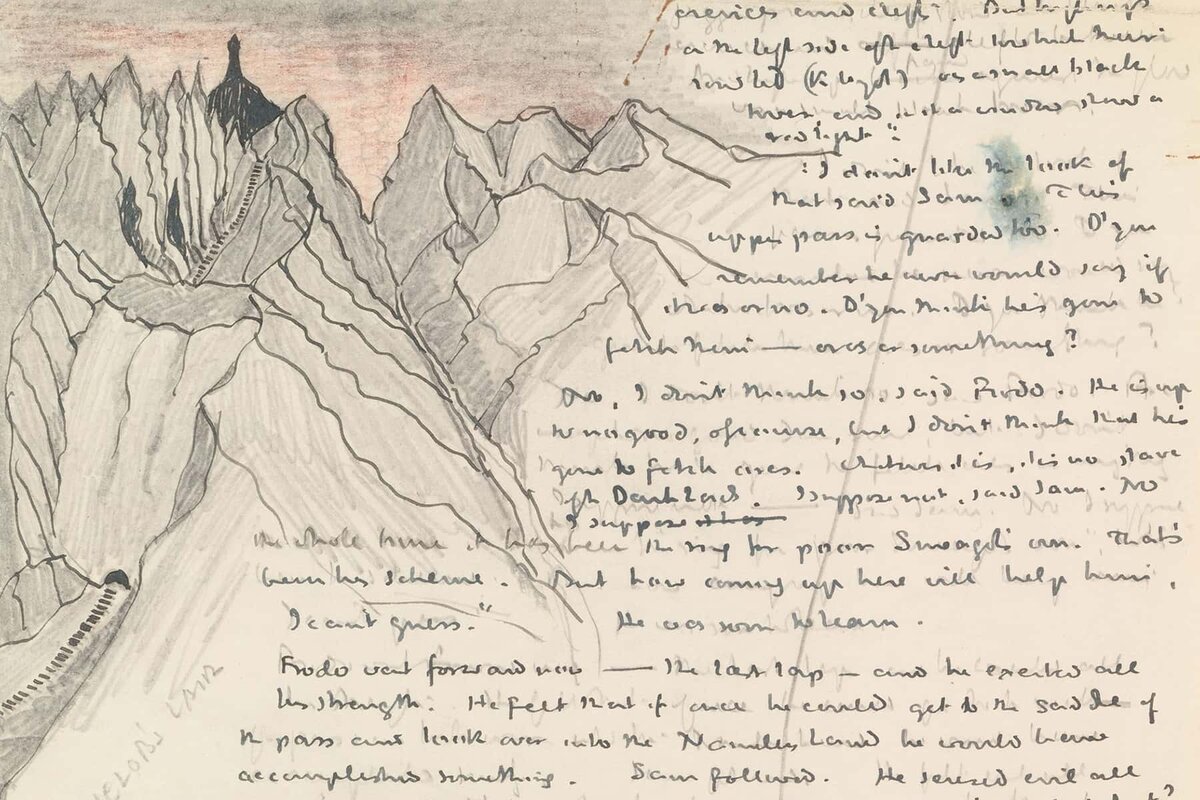 crevices and clefts.
on the left side of the cleft
(Kirith) was a small black
tower and in it a window showed a
red light."
"I don't like the look of
that said Sam. This
upper pass is guarded too. D'you
remember he never would say if
it was or no. D'you think he's gone to
fetch them — orcs or something?
No, I don't think so, said Frodo. He is up
to no good, of course, but I don't think that he's
gone to fetch orcs. Whatever it is, it is no slave
of the Dark Lord's. I suppose not, said Sam. No
I suppose it has
the whole time it has been the ring for poor Smeagol's own. That's
been his scheme. But how coming up here will help him,
I can't guess." He was soon to learn.
Frodo went forward now — the last lap — and he exerted all
his strength. He felt that if once he could get to the saddle of
the pass and look over into the Nameless Land he would have
accomplished something. Sam followed. He sensed evil all